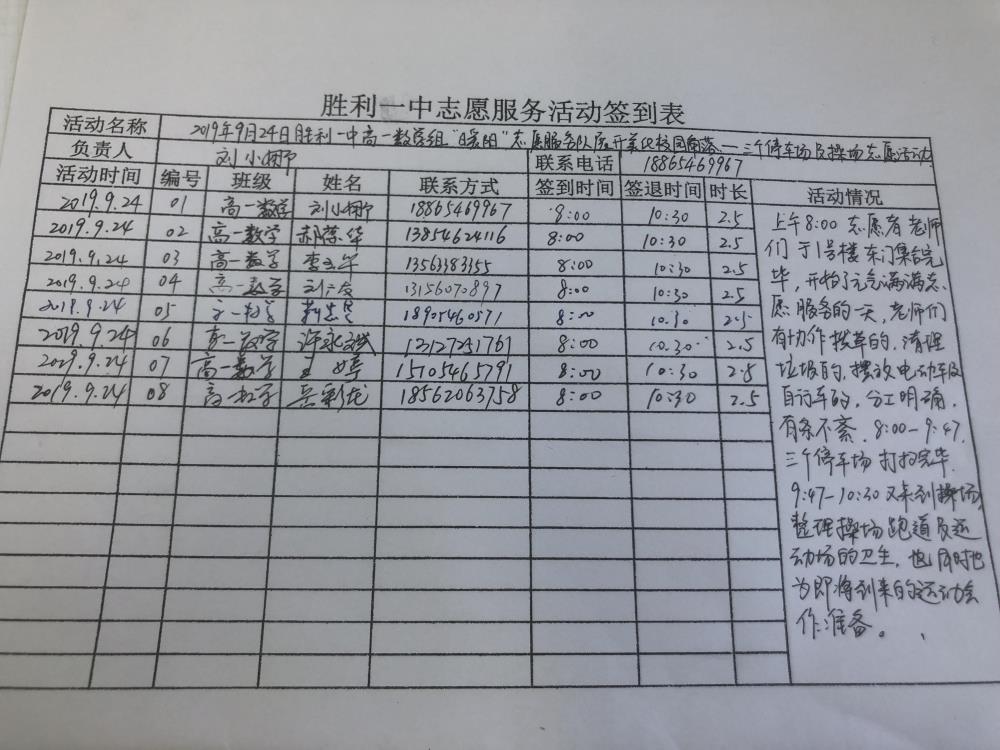 胜利一中志愿服务活动签到表
活动名称 2019年9月24日胜利一中高一数学组"暖阳"志愿服务队展开美化校园角落——三个停车场及操场志愿活动
负责人 刘小娜 联系电话 18865469967
活动时间 编号 班级 姓名 联系方式 签到时间 签退时间 时长 活动情况
2019.9.24 01 高一数学 刘小娜 18865469967 8:00 10:30 2.5
2019.9.24 02 高一数学 郝葆华 13854624116 8:00 10:30 2.5
2019.9.24 03 高一数学 13563383155 8:00 10:30 2.5
2019.9.24 04 高一数学 13156070897 8:00 10:30 2.5
2019.9.24 05 高一数学 18905460571 8:00 10:30 2.5
2019.9.24 06 高一数学 8:00 10:30 2.5
2019.9.24 07 高一数学 王婷 15105465791 8:00 10:30 2.5
2019.9.24 08 高一数学 岳彩龙 18562063758 8:00 10:30 2.5
上午8:00志愿者老师
们于1号楼东门集合完
毕,开始了元气满满志
愿服务的一天,老师们
有协作拔草的,清理
垃圾的,摆放电动车及
自行车的,分工明确,
有条不紊.8:00-9:47.
三个停车场打扫完毕.
9:47-10:30又来到操场,
整理操场跑道及运
动场的卫生,也同时也
为即将到来的运动会
作准备。